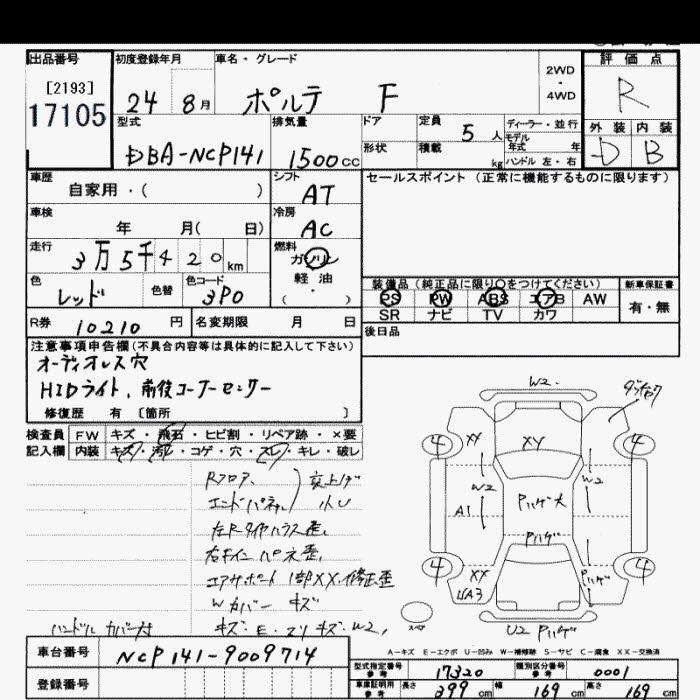 出品番号 初度登録年月 車名・グレード 2WD・4WD 評価点
[2193]
17105
24 8月 ポルテ F R
型式 排気量 ドア 定員 5人 ディーラー・並行 外装 内装
DBA-NCP141 1500cc 形状 積載 kg モデル年式 年 ハンドル 左・右 D B
車歴 シフト セールスポイント (正常に機能するものに限ります)
自家用・( ) AT
車検 冷房
年 月( 日) AC
走行 燃料
3万5千420km ガソリン
軽油
( ・ )
色 色替 色コード
レッド 3P0
装備品 (純正品に限り○をつけてください) 新車保証書
PS PW ABS エアB AW 有・無
SR ナビ TV カワ
R券 10210円 名変期限 月 日 後日品
注意事項申告欄(不具合内容等は具体的に記入して下さい)
オーディオレス穴
HIDライト、前後コーナーセンサー
修復歴 有 〔箇所 〕
検査員 FW キズ・飛石・ヒビ割・リペア跡・×要
記入欄 内装 キズ・汚れ・コゲ・穴・スレ・キレ・破レ
Rフロア、
エンドパネル 交上ゲ
小U
左Rタイヤハウス歪、
右サイドパネ歪、
コアサポート1部XX、修正歪
Wカバー キズ
ハンドルカバー付 キズ・E・スリキズ・W2、
W2
4 XY XY 4
W2 W2
A1 Pハゲ大
Pハゲ
4 XX Pハゲ 4
UA3
スペア
U2 Pハゲ
A-キズ E-エクボ U-凹み W-補修跡 S-サビ C-腐食 XX-交換済
車台番号 NCP141-9009714
型式指定番号 参考 17320 類別区分番号 参考 0001
登録番号
車庫証明用 参考 長さ 399cm 幅 169cm 高さ 169cm